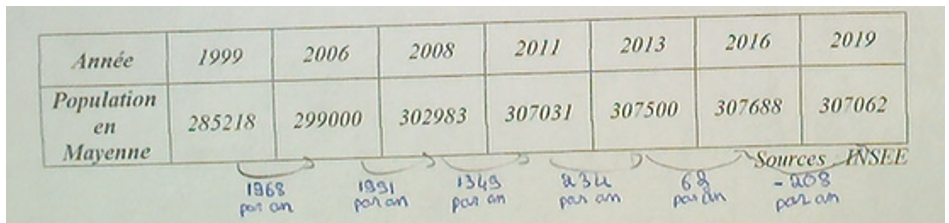 Année 1999 2006 2008 2011 2013 2016 2019
Population en Mayenne 285218 299000 302983 307031 307500 307688 307062
Sources INSEE
1968 1991 1349 234 62 -208
par an par an par an par an par an par an